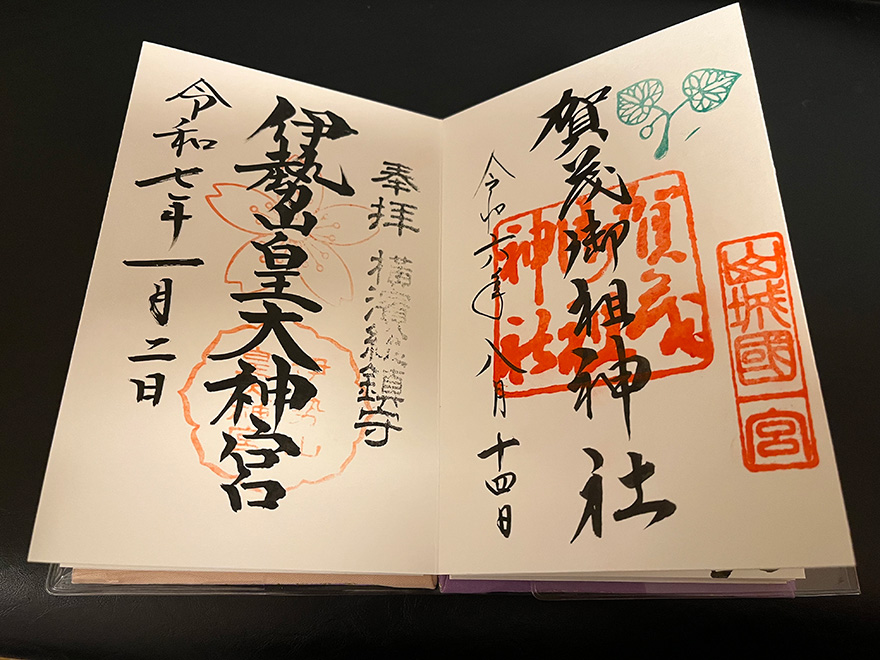 山城國一宮
賀茂御祖神社
賀茂
御祖
神社
令和六年八月十四日
奉拝 横濱総鎮守
伊勢山皇大神宮
令和七年一月二日